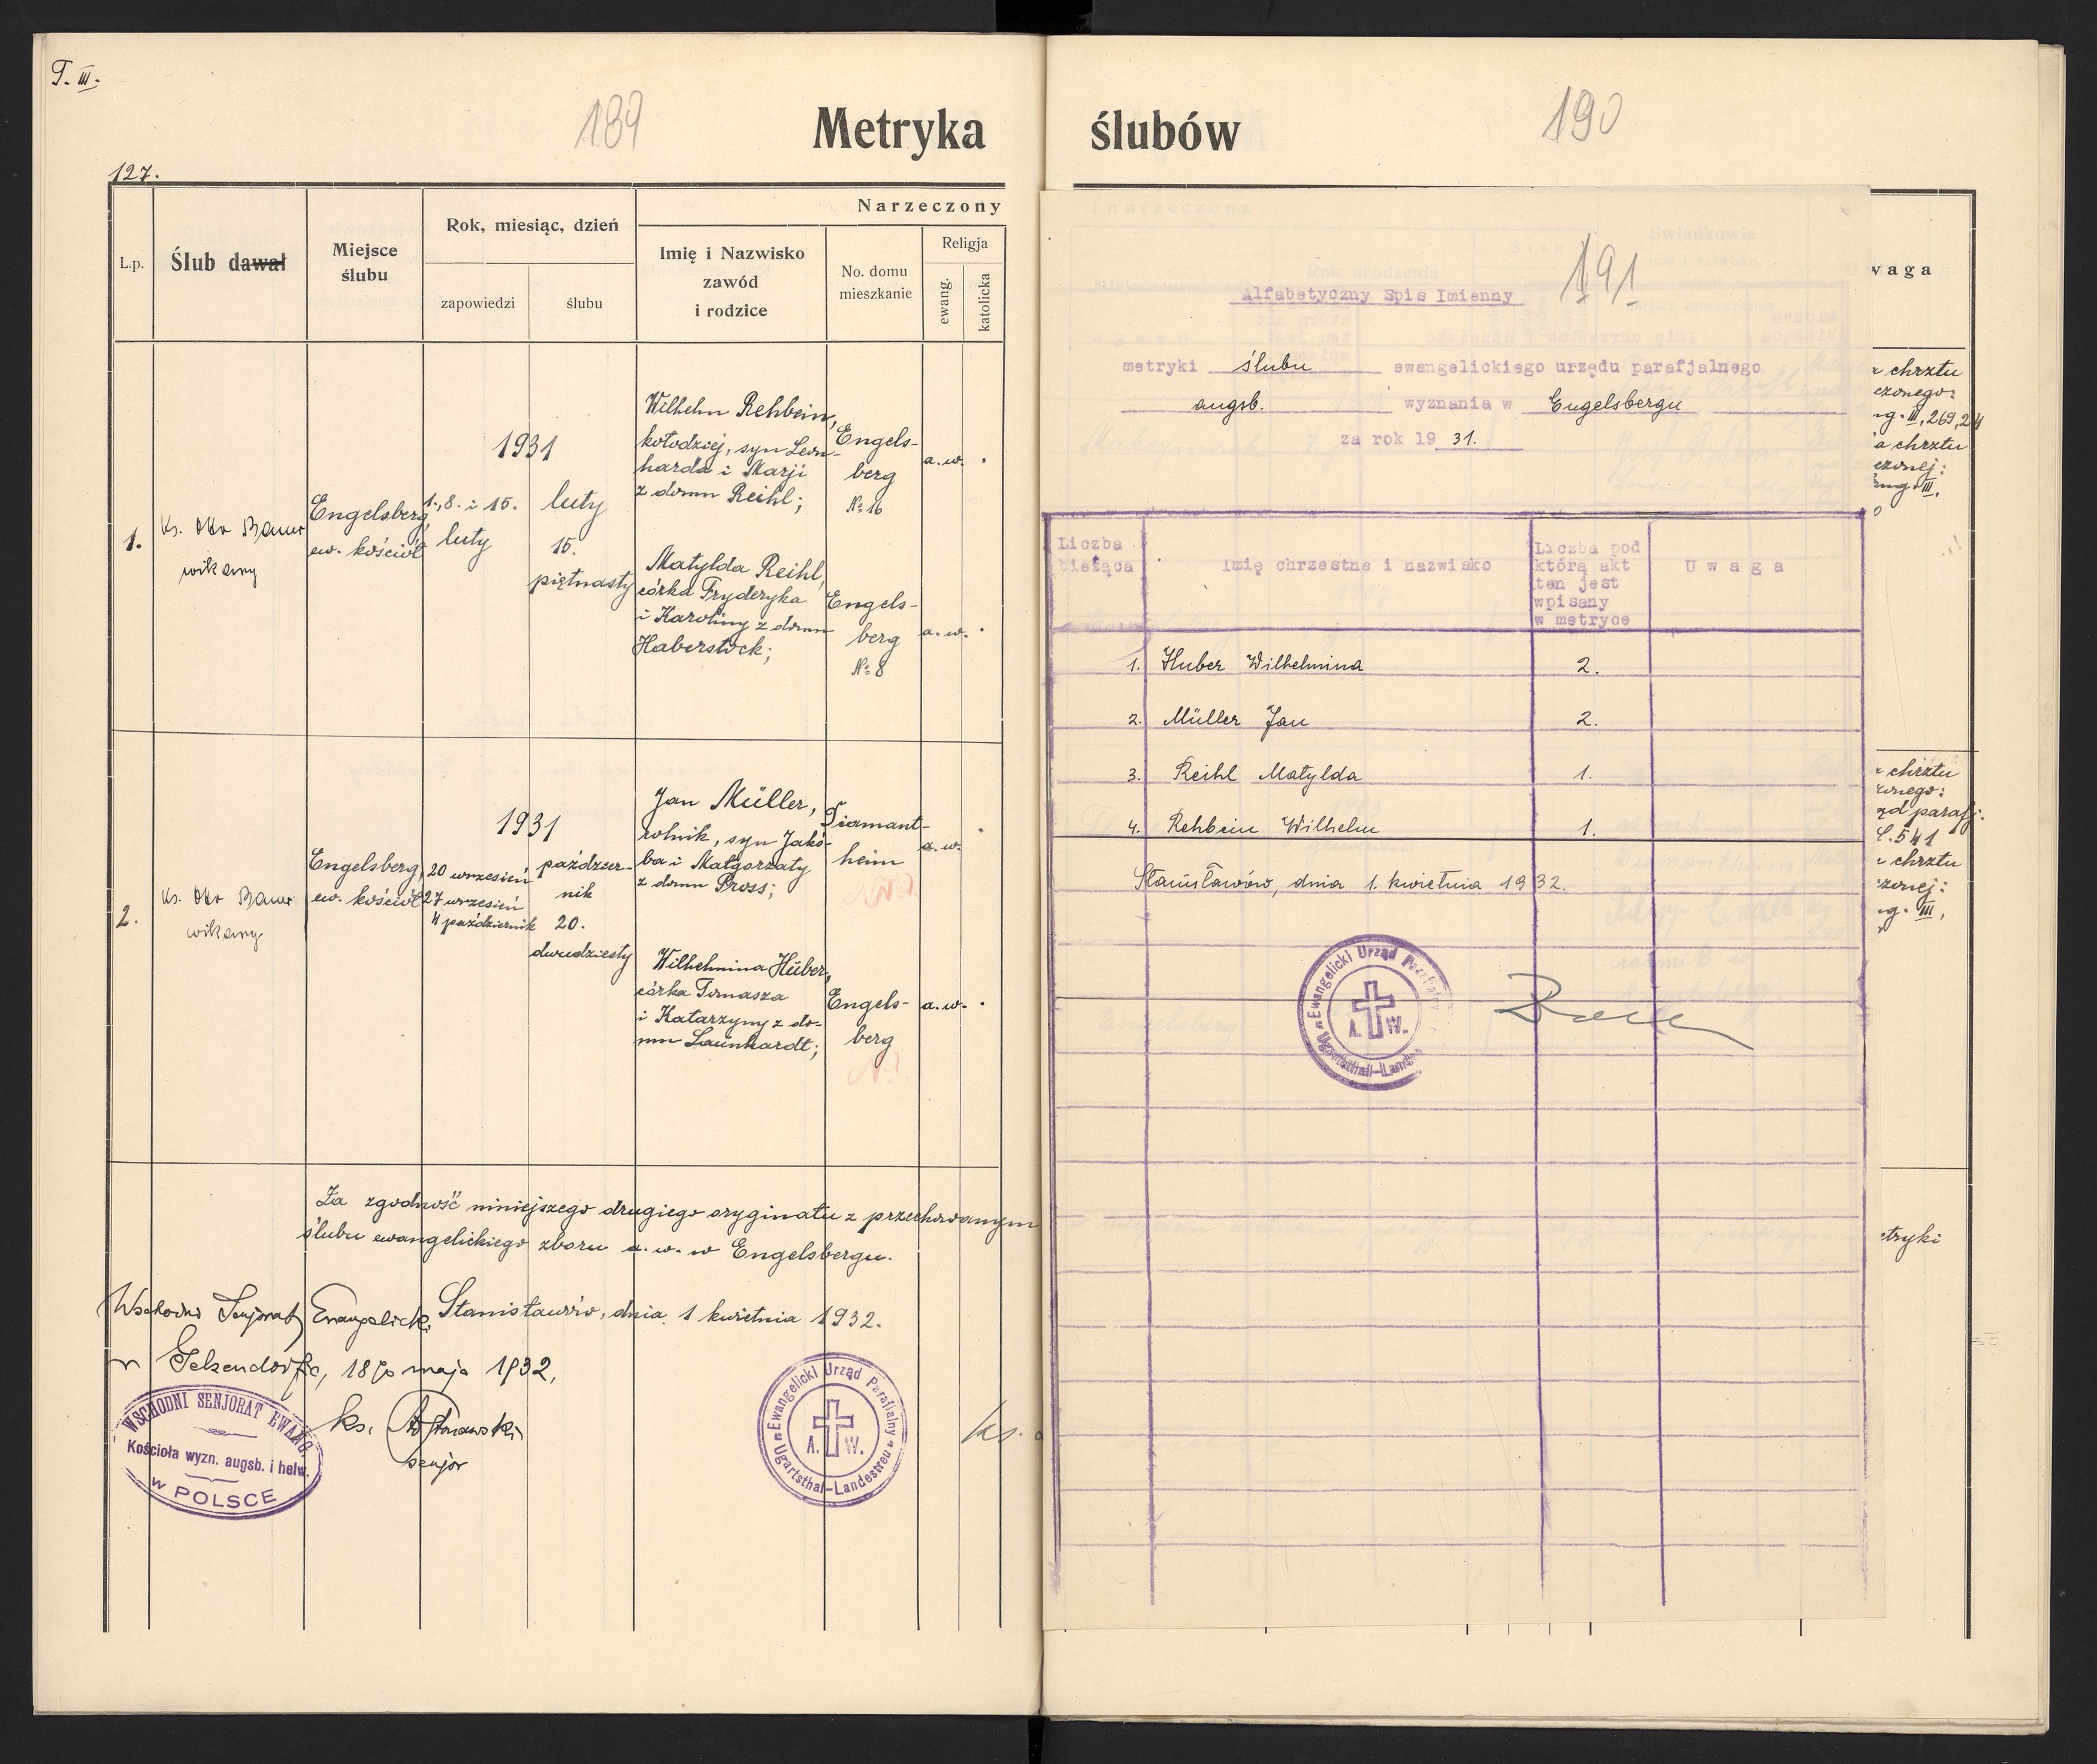 T. III.
189
Metryka
127.
L.p.
Ślub dawał
Miejsce
ślubu
Rok, miesiąc, dzień
zapowiedzi
ślubu
Narzeczony
Imię i Nazwisko
zawód
i rodzice
No. domu
mieszkanie
Religja
ewang.
katolicka
1.
Ks. Otto Bauer
wikary
Engelsberg,
ew. kościół
1931
1., 8. i 15.
luty
luty
15.
piętnasty
Wilhelm Rehbein,
kołodziej, syn Leon-
harda i Marji
z domu Reihl;
Engels-
berg
№ 16
a. w.
Matylda Reihl,
córka Fryderyka
i Karoliny z domu
Haberstock;
Engels-
berg
№ 8
a. w.
2.
Ks. Otto Bauer
wikary
Engelsberg,
ew. kościół
1931
20 wrzesień
27 wrzesień
4 październik
paździer-
nik
20.
dwudziesty
Jan Müller,
rolnik, syn Jakó-
ba i Małgorzaty
z domu Pross;
Diamant-
heim
a. w.
Wilhelmina Huber,
córka Tomasza
i Katarzyny z do-
mu Launhardt;
Engels-
berg
a. w.
Za zgodność niniejszego drugiego oryginału z przechowanym
ślubu ewangelickiego zboru a. w. w Engelsbergu.
Stanisławów, dnia 1 kwietnia 1932.
Wschodni Senjorat Ewangelicki
w Gelsendorfie, 18go maja 1932,
ks.
senjor
WSCHODNI SENJORAT EWANG.
Kościoła wyzn. augsb. i helw.
w POLSCE
Ewangelicki Urząd Parafialny
A. W.
Ugartsthal-Landestreu
ks.
ślubów
190
191
Alfabetyczny Spis Imienny
metryki ślubu ewangelickiego urzędu parafjalnego
augsb. wyznania w Engelsbergu
za rok 19 31.
Liczba
bieżąca
Imię chrzestne i nazwisko
Liczba pod
którą akt
ten jest
wpisany
w metryce
Uwaga
1. Huber Wilhelmina 2.
2. Müller Jan 2.
3. Reihl Matylda 1.
4. Rehbein Wilhelm 1.
Stanisławów, dnia 1. kwietnia 1932.
Ewangelicki Urząd Parafialny
A. W.
Ugartsthal-Land
waga
chrztu
czonego:
g. III, 269, 24
a chrztu
czonej:
ng. III,
chrztu
zonego:
zd parafj.
L. 541
chrztu
zonej:
g. III,
etryki